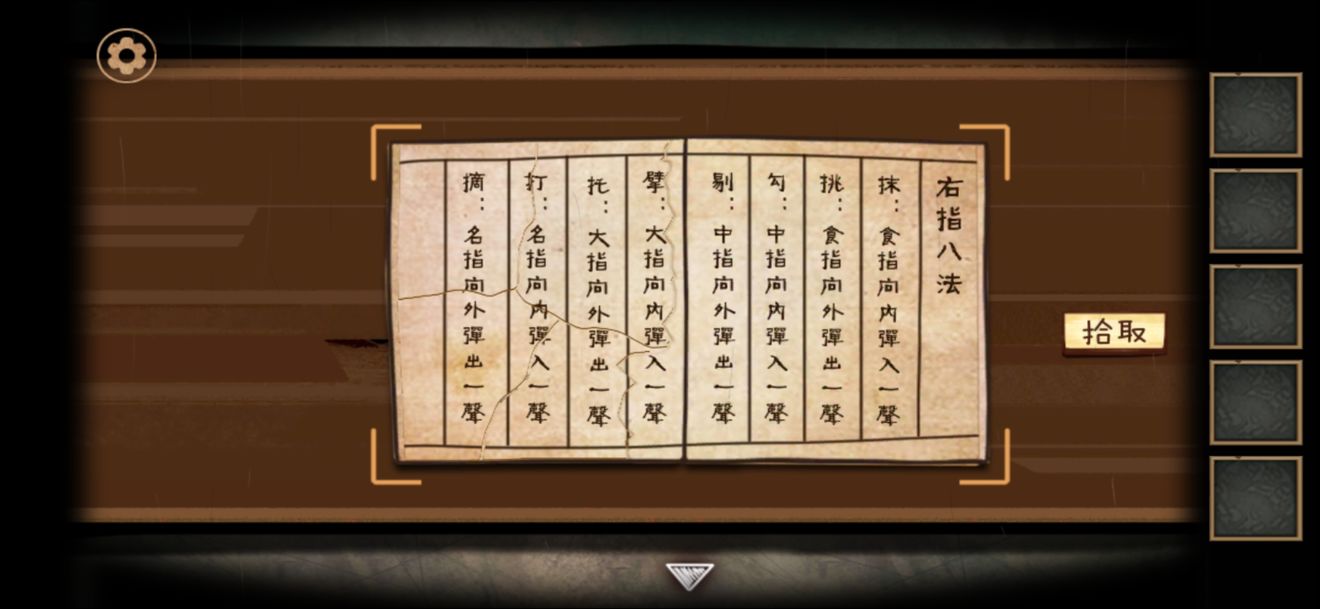 右指八法
抹：食指向內彈入一聲
挑：食指向外彈出一聲
勾：中指向內彈入一聲
剔：中指向外彈出一聲
擘：大指向內彈入一聲
托：大指向外彈出一聲
打：名指向內彈入一聲
摘：名指向外彈出一聲
拾取